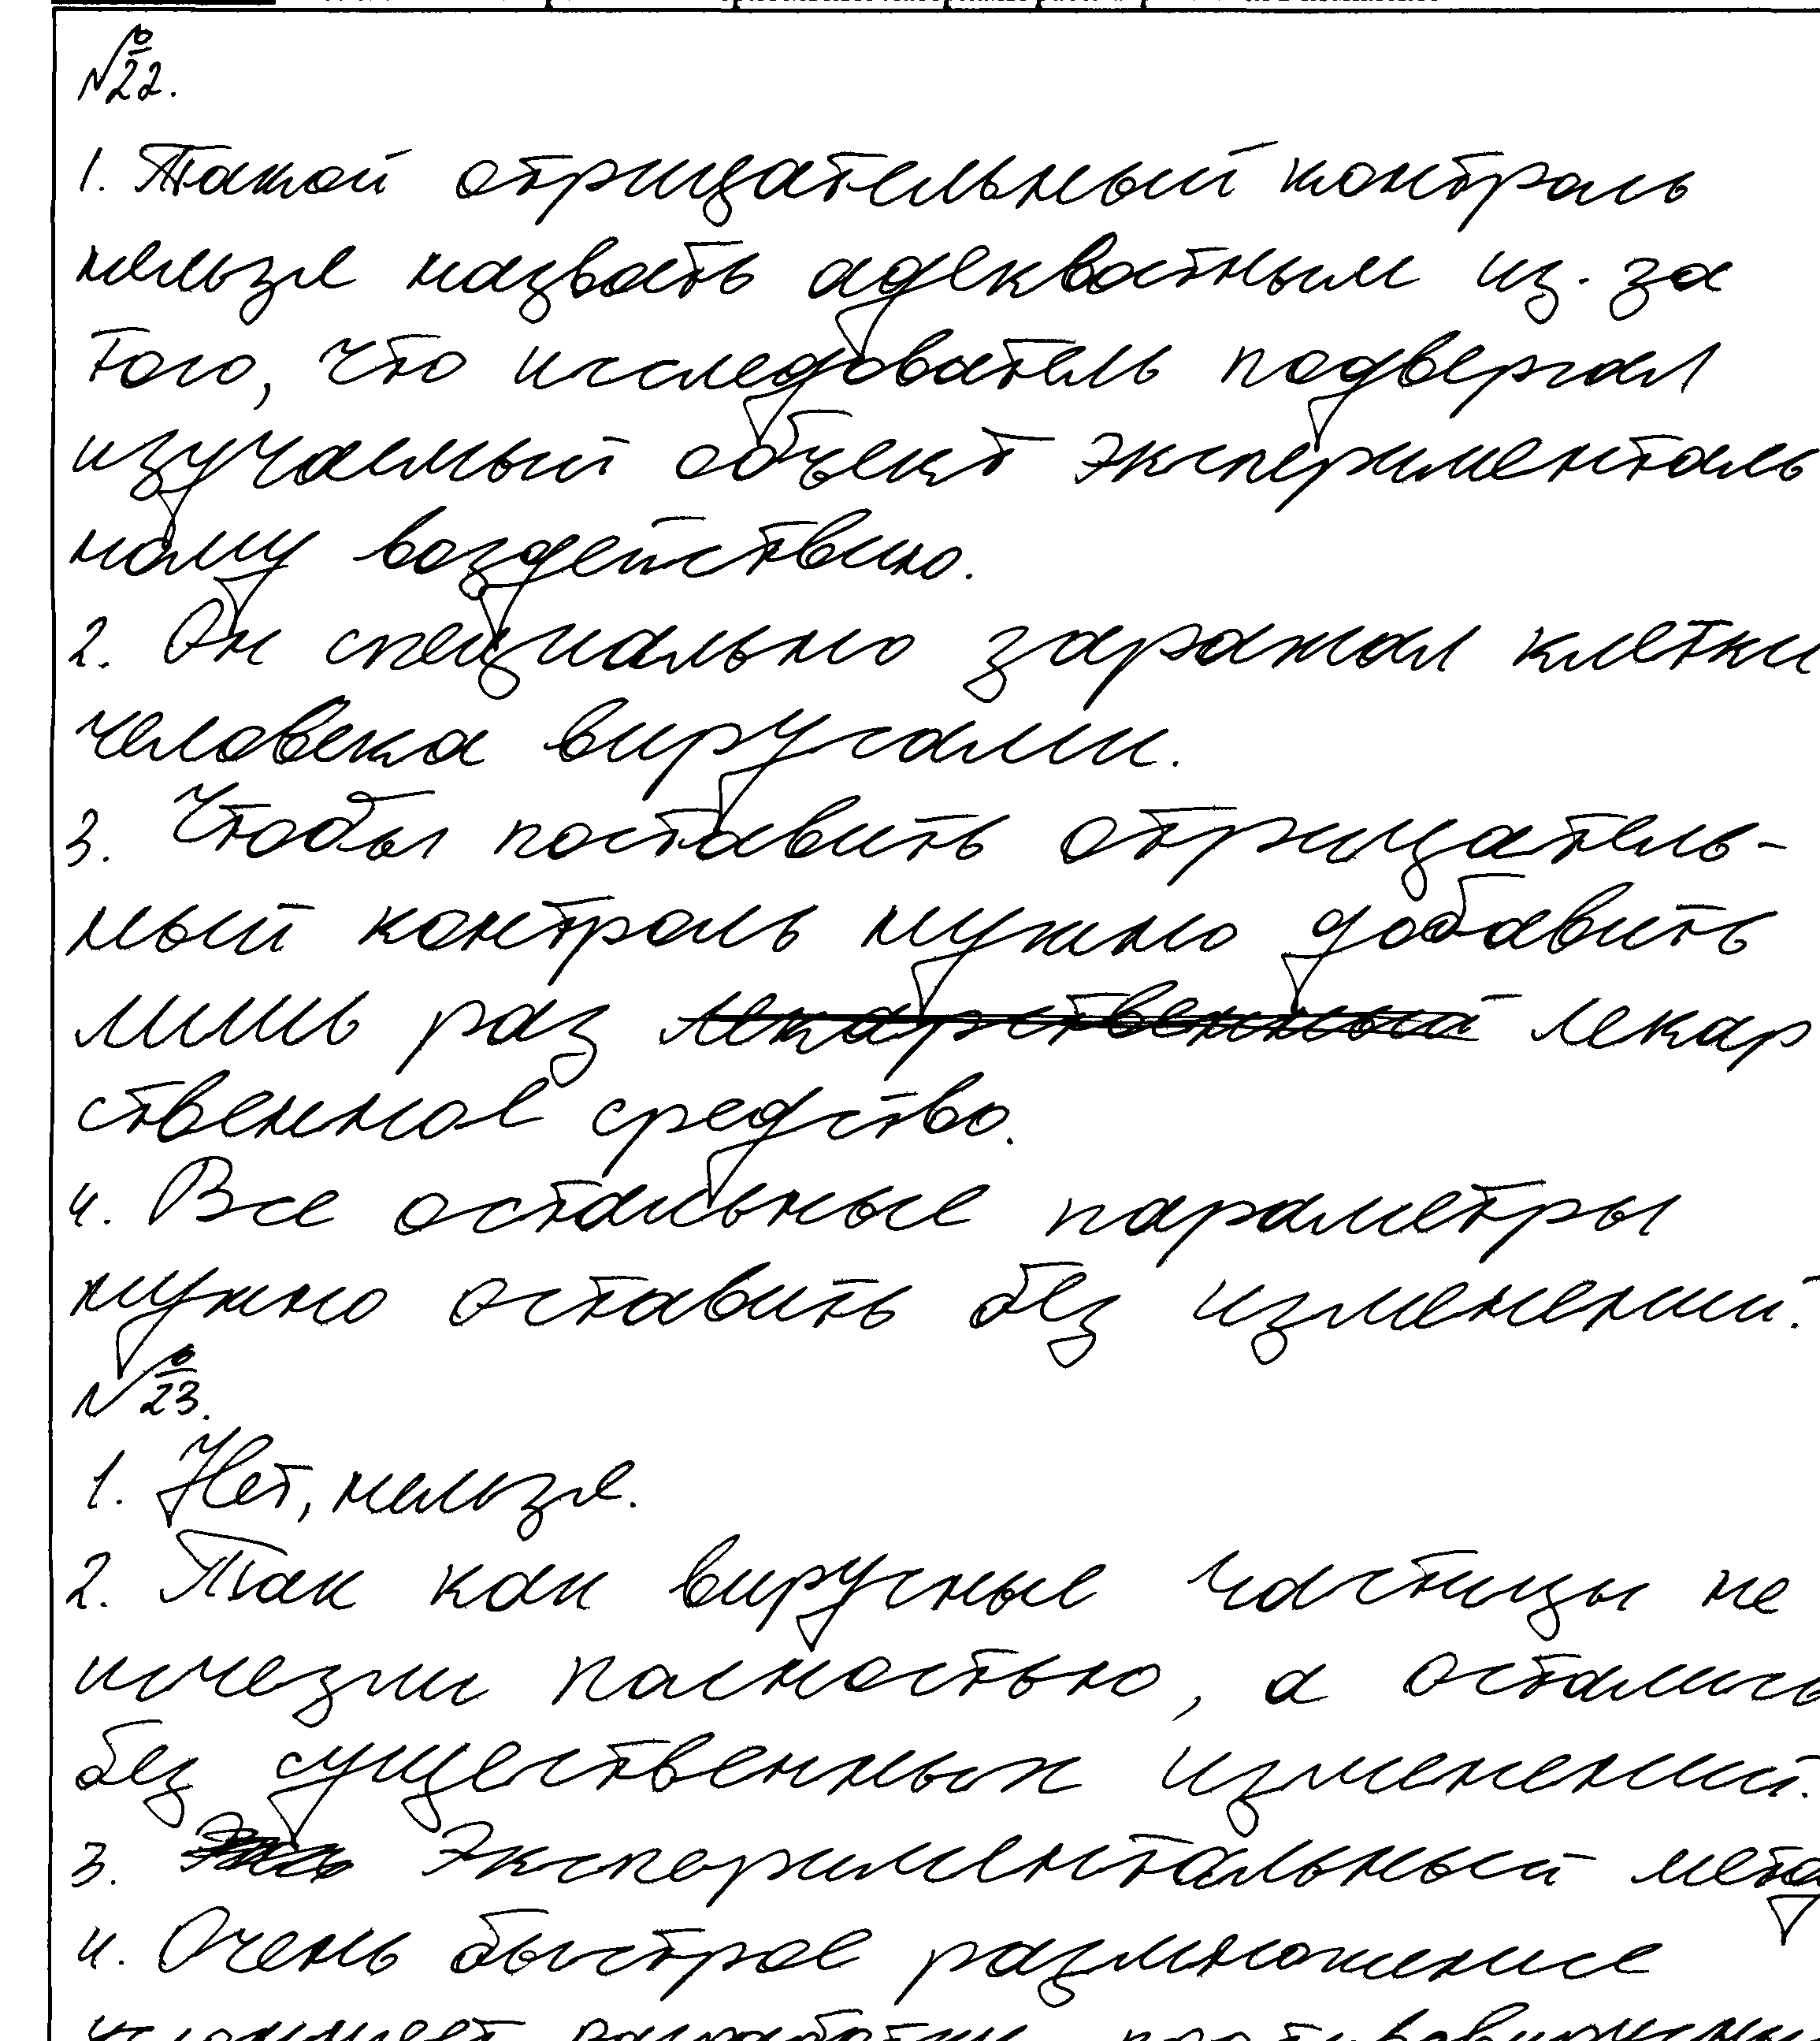 №22.
1. Такой отрицательный контроль
нельзя назвать адекватным из-за
того, что исследователь подвергал
изучаемый объект эксперименталь
ному воздействию.
2. Он специально заражал клетки
человека вирусами.
3. Чтобы поставить отрицатель-
ный контроль нужно добавить
лишь раз лекарственный лекар
ственное средство.
4. Все остальные параметры
нужно оставить без изменений.
№23.
1. Нет, нельзя.
2. Так как вирусные частицы не
исчезли полностью, а остались
без существенных изменений.
3. Экспериментальный мето
4. Очень быстрое размножение